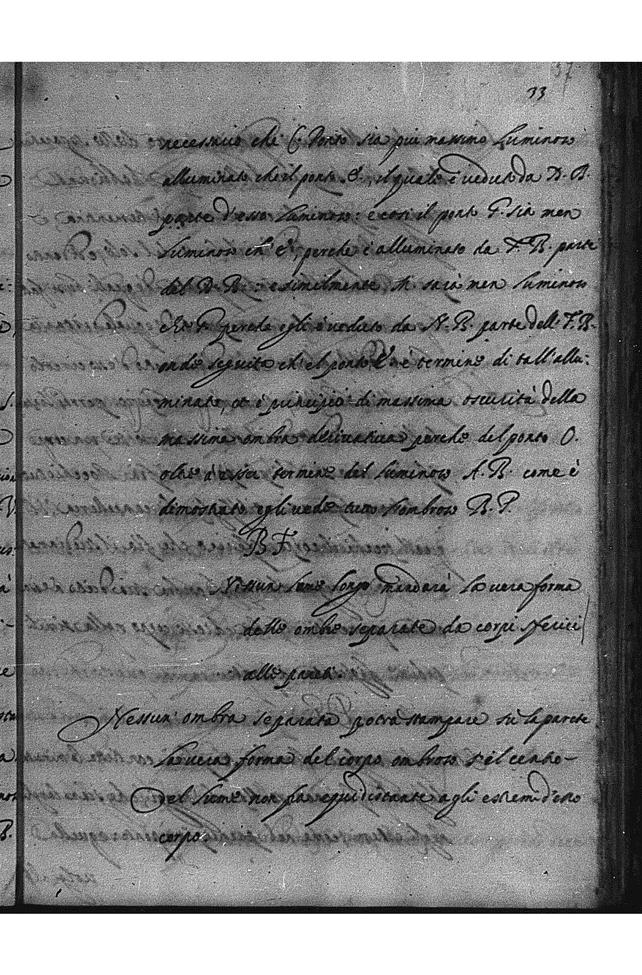 33
necessario che C Ponto sia piu massimo Luminoso
alluminato che il ponto E., il quale è veduto da D. B.
parte d'esso Luminoso: e così il ponto G. sià men
Luminoso ch' E perche è alluminato da F. B. parte
del D. B.: e similmente sarà men Luminoso
perche egli è veduto da N. B. parte dell' F. B.
onde seguita ch' el ponto è termine di tall' allu:
minato, et è principio di massima oscurità della
massima ombra derivativa perche del ponto O.
oltre d'essa termine del Luminoso A. B. come è
dimostrato egli vede tutto l'ombroso B. P.
B. F.
Nessun lume longo mandarà la vera forma
delle ombre separate da corpi sferici
alle pareti.
Nessun' ombra separata potrà stampare sù la parete
la vera forma del corpo ombroso s'il centro
del lume non sia equidistante agli estremi d'esso
corpo.